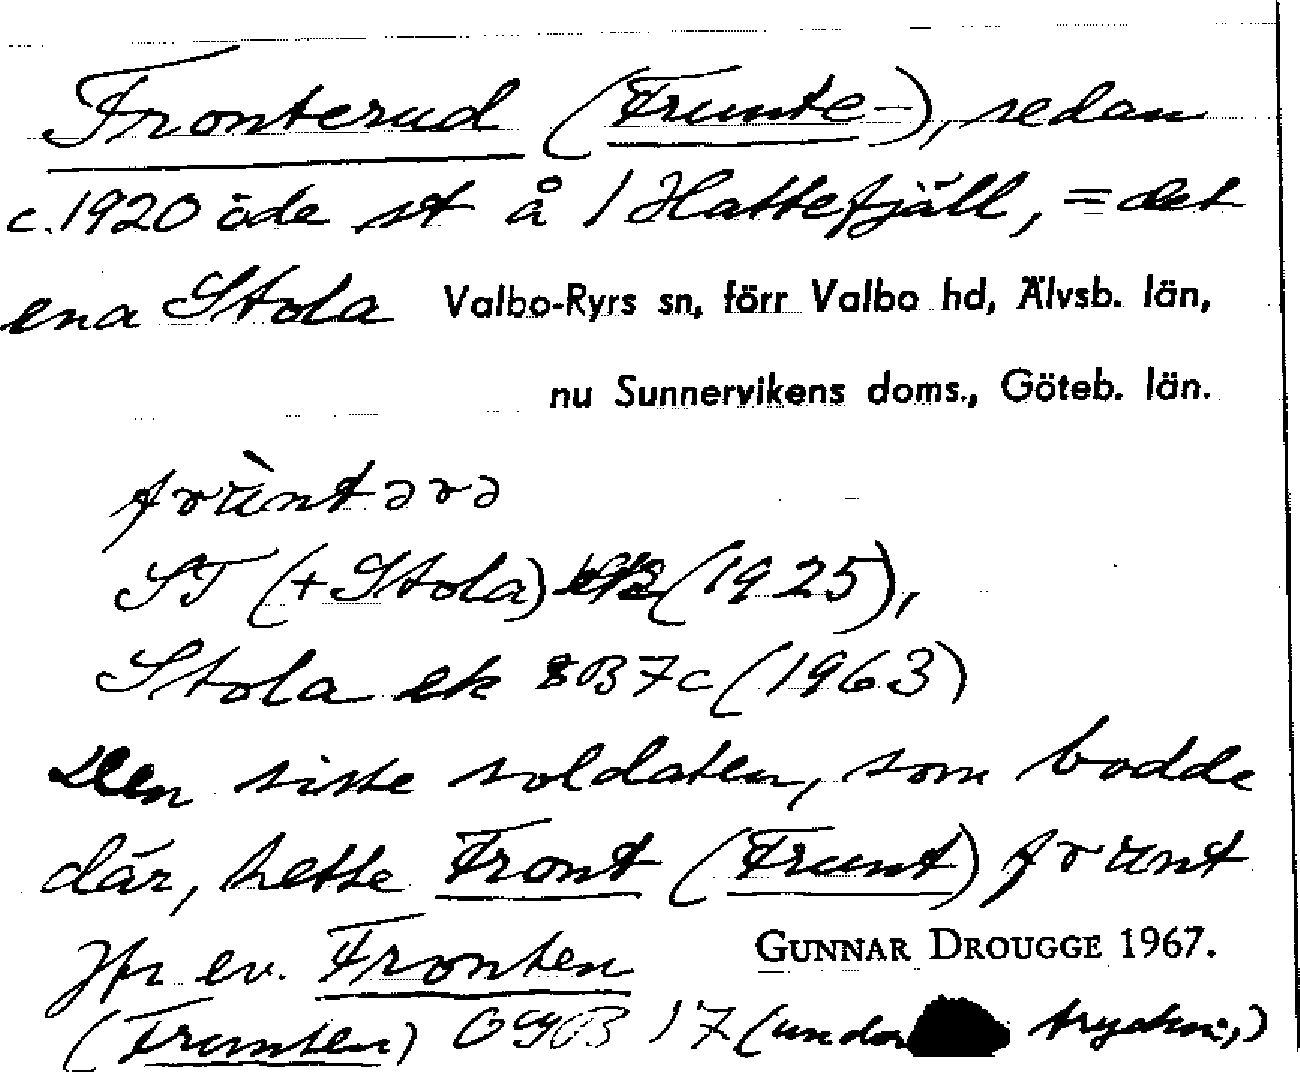 Fronterud (Frunte-), sedan
c. 1920 öde st å 1 Hattefjäll, = det
ena Stola Valbo-Ryrs sn, förr Valbo hd, Älvsb. län,
nu Sunnervikens doms., Göteb. län.
frùntərə
ST (+ Stola) (1925),
Stola ek 8B7c (1963)
Den siste soldaten, som bodde
där, hette Front (Frunt) frunt
Jfr ev. Fronten
GUNNAR DROUGGE 1967.
(Frunten) OGB 17 (under tryckn.,)